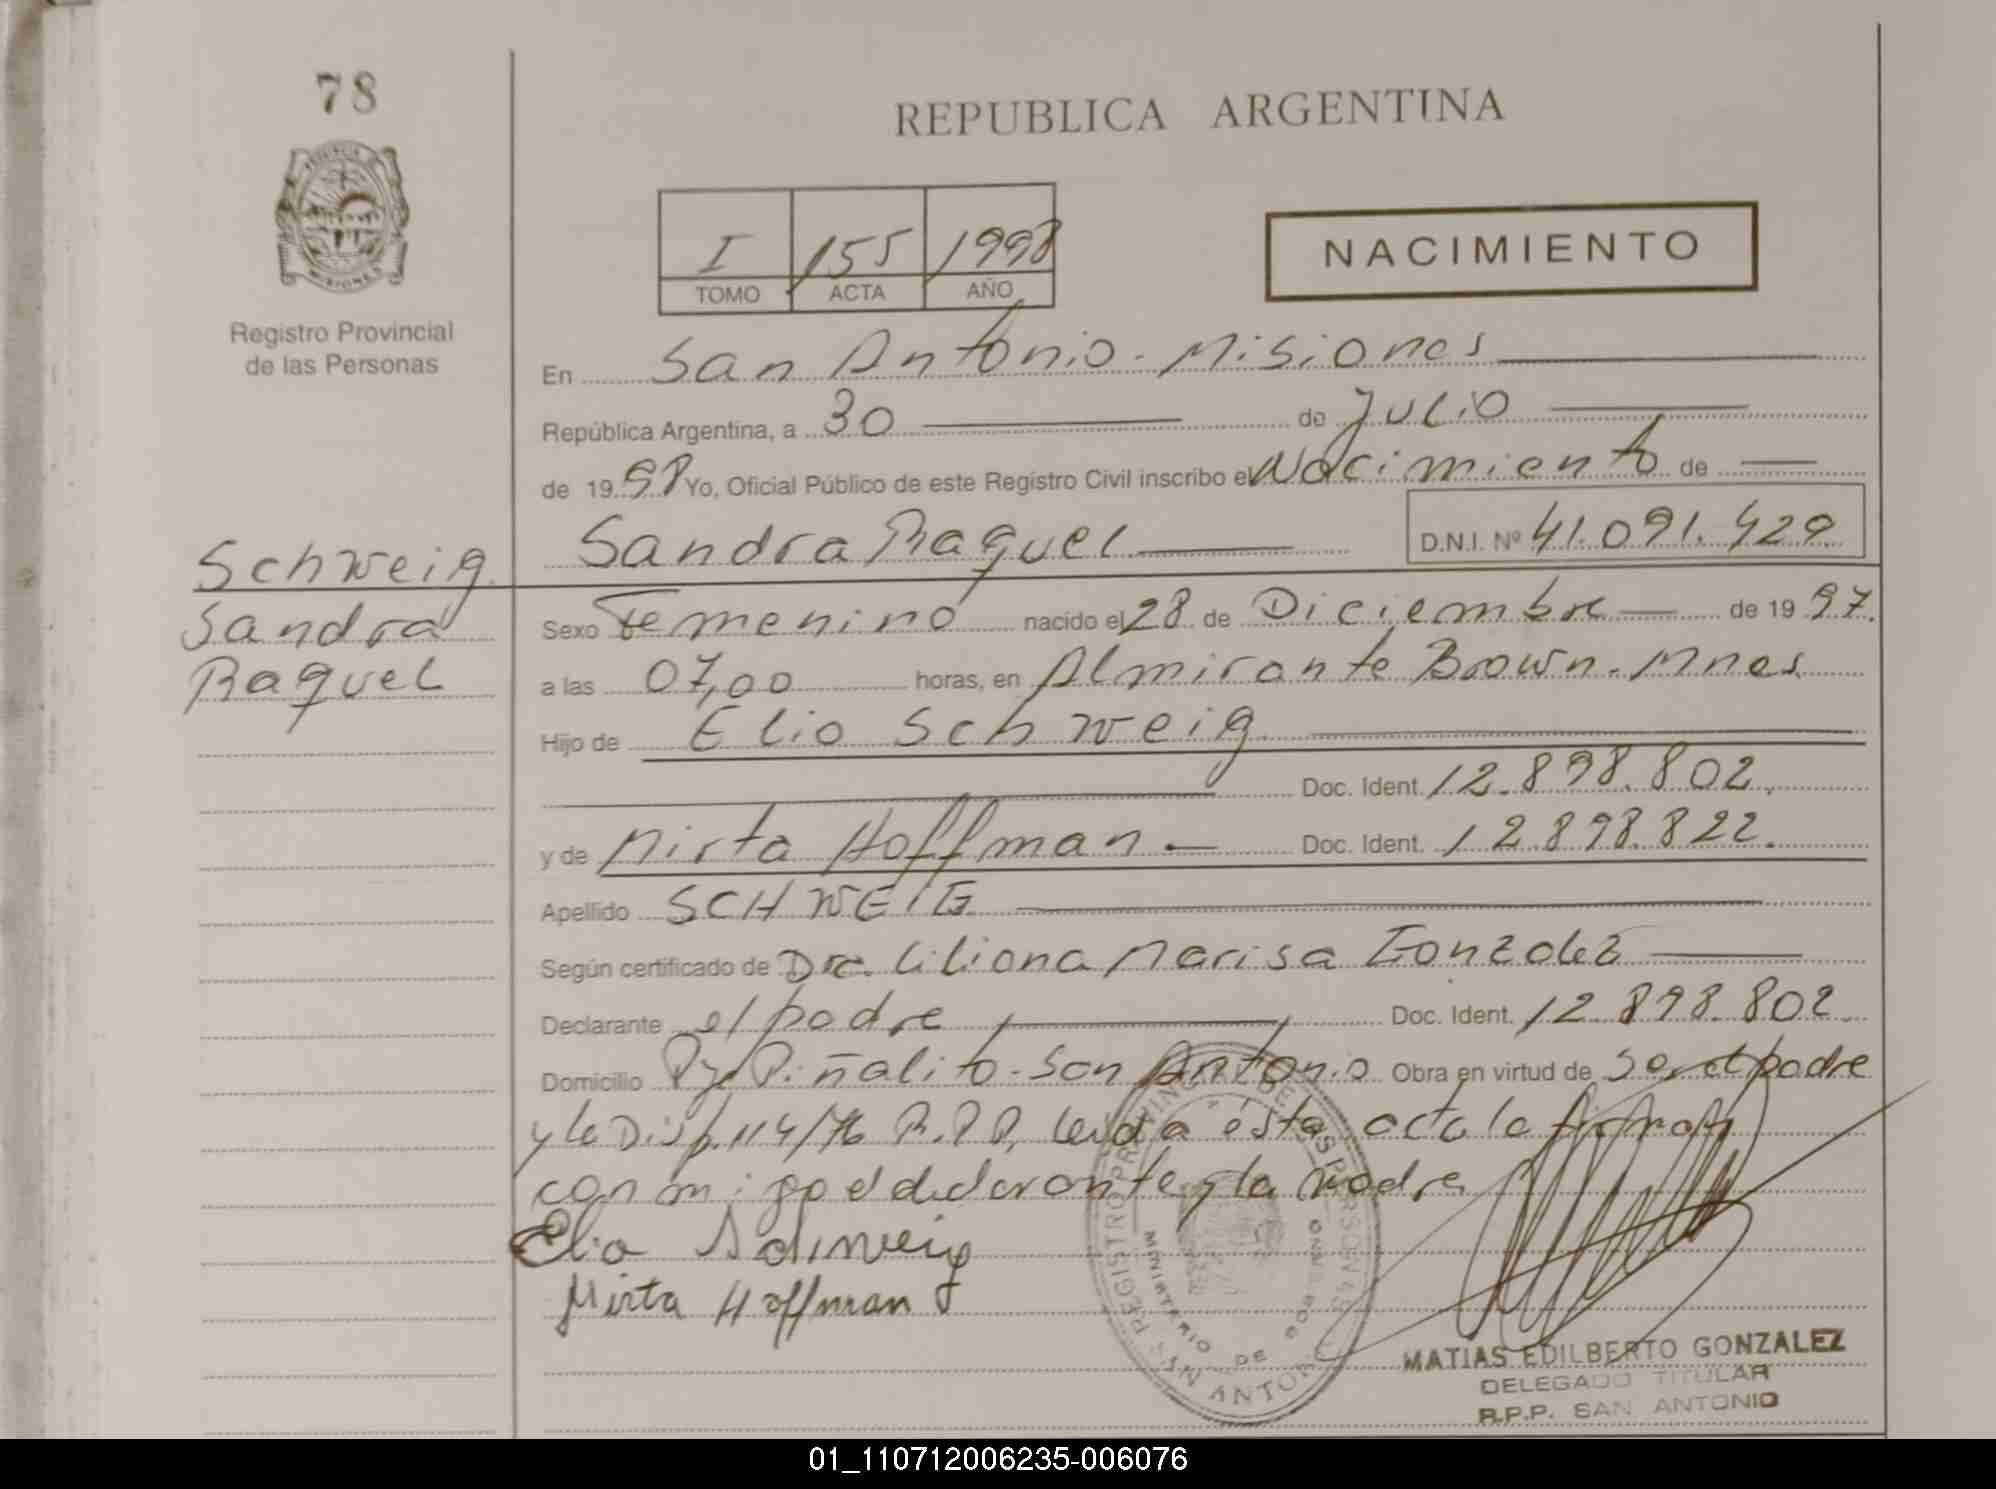 78
REPUBLICA ARGENTINA
I 155 1998
TOMO ACTA AÑO
NACIMIENTO
Registro Provincial
de las Personas
En San Antonio - Misiones
República Argentina, a 30 de Julio
de 19 98 Yo, Oficial Público de este Registro Civil inscribo el Nacimiento de
Sandra Raquel D.N.I. Nº 41.091.429
Schweig
Sandra
Raquel
Sexo Femenino nacido el 28 de Diciembre de 19 97.
a las 07,00 horas, en Almirante Brown - Mnes.
Hijo de Elio Schweig
Doc. Ident. 12.898.802.
y de Mirta Hoffman Doc. Ident. 12.898.822.
Apellido SCHWEIG
Según certificado de Dra. Liliana Marisa Gonzalez
Declarante el padre Doc. Ident. 12.898.802.
Domicilio Pje Piñalito - San Antonio Obra en virtud de ser el padre
y la Disp. 114/76 R.P.P. leida ésta acta la firman
conmigo el declarante y la madre
Elio Schweig
Mirta Hoffman
REGISTRO PROVINCIAL DE LAS PERSONAS
MINISTERIO DE GOBIERNO
SAN ANTONIO
MATIAS EDILBERTO GONZALEZ
DELEGADO TITULAR
R.P.P. SAN ANTONIO
01_110712006235-006076